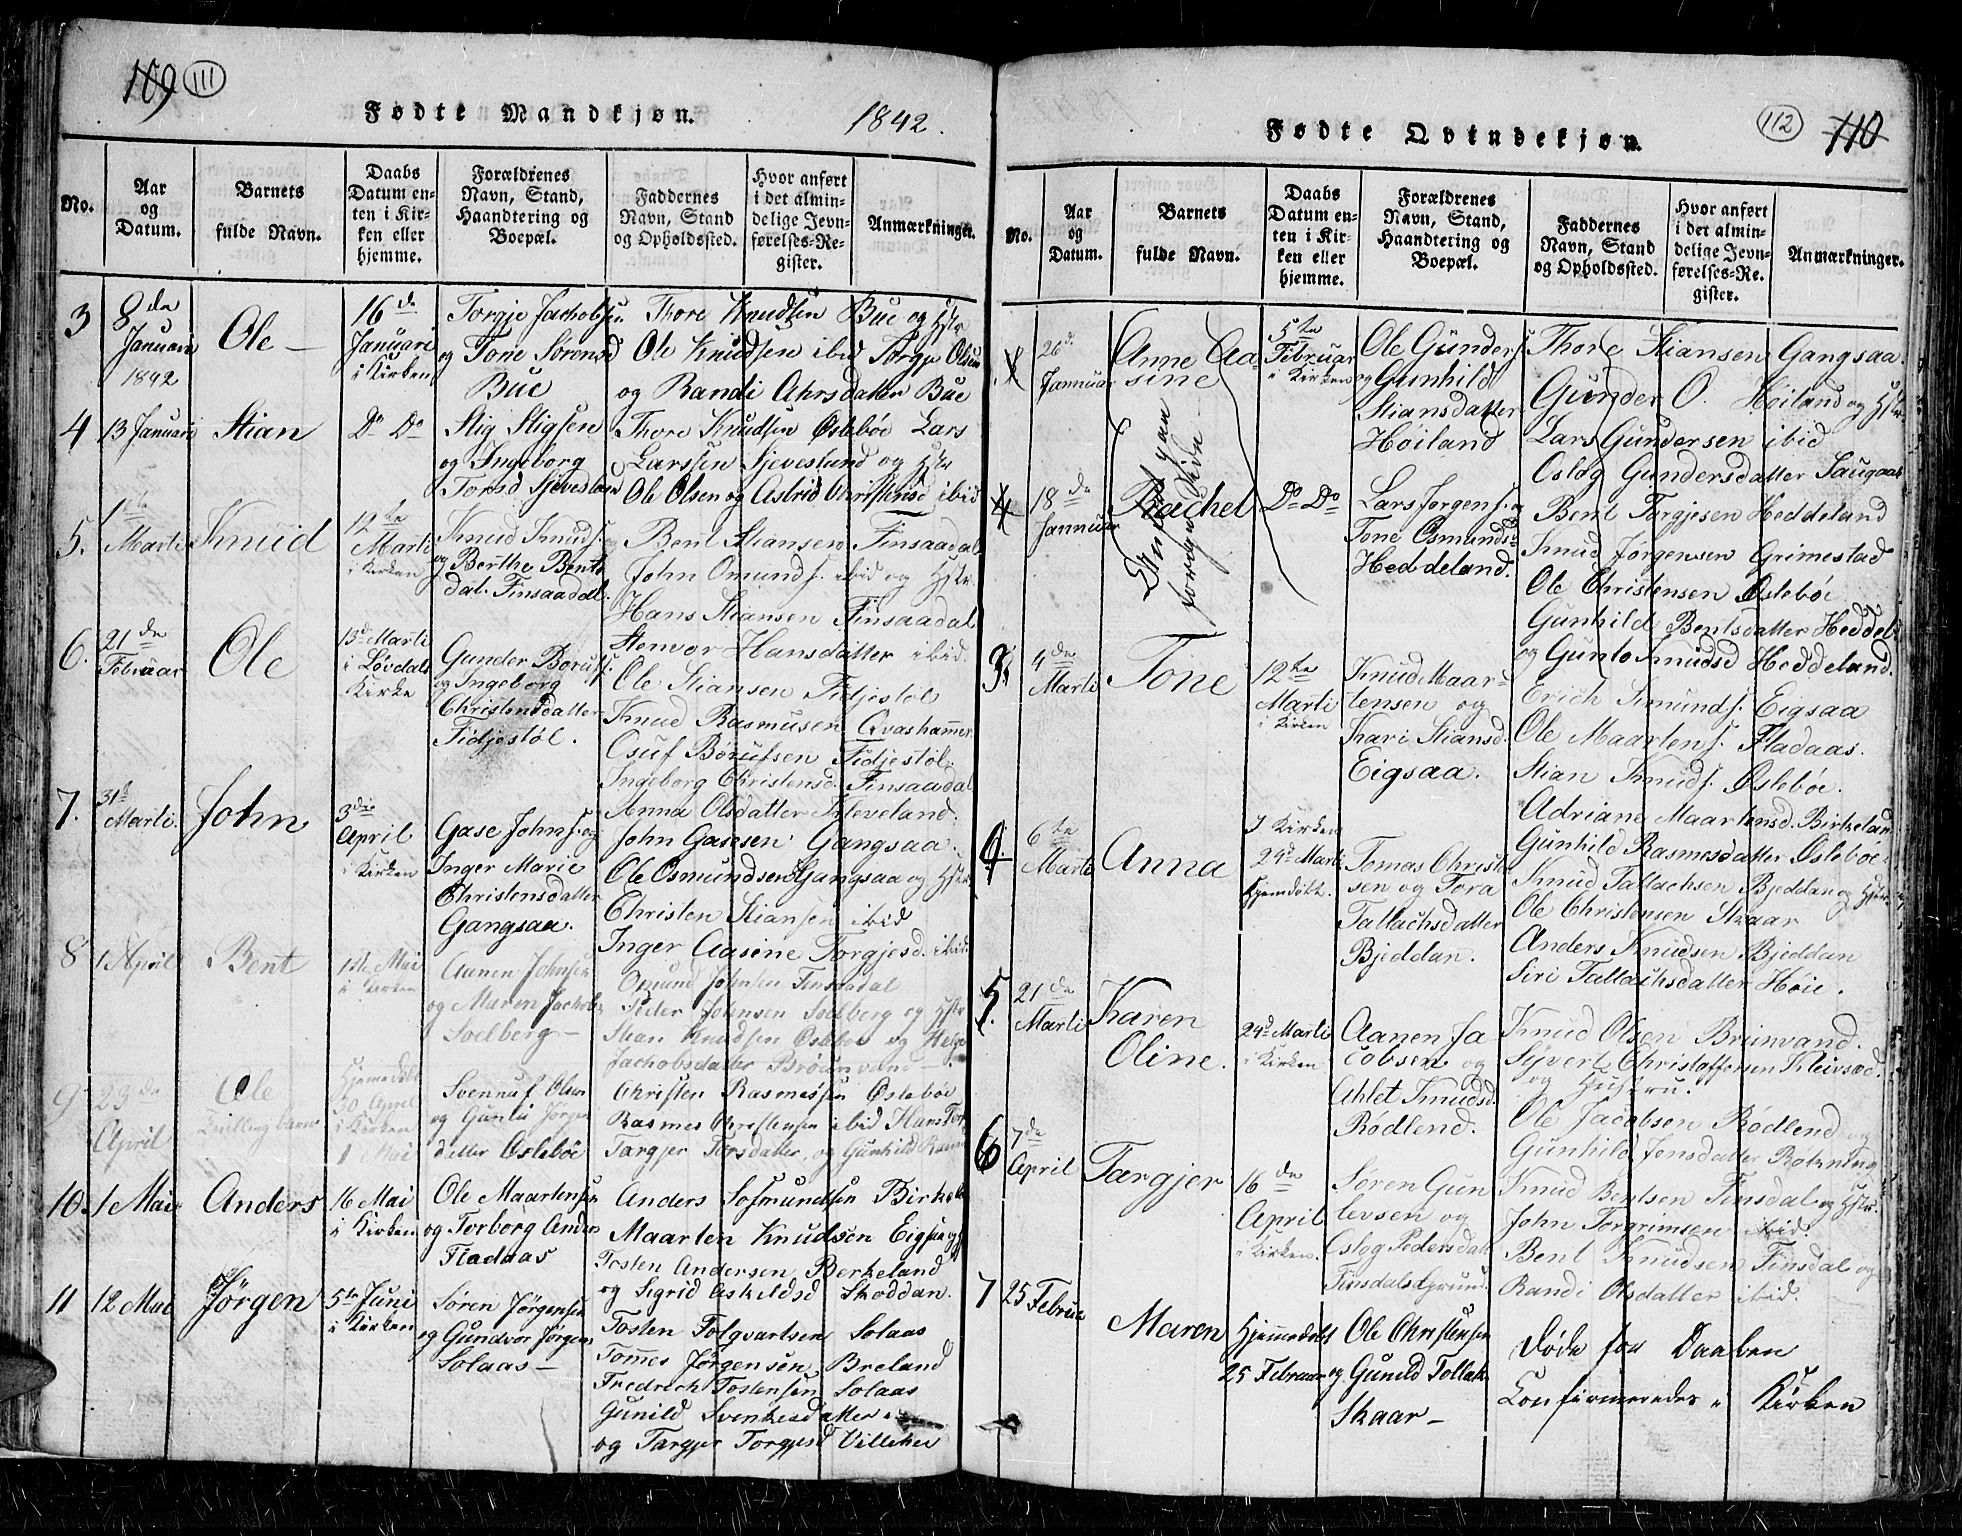 109 111
Fødte Mandkjøn.
1842.
No.
Aar
og
Datum.
Barnets
fulde Navn.
Daabs
Datum en-
ten i Kir-
ken eller
hjemme.
Forældrenes
Navn, Stand,
Haandtering og
Boepæl.
Faddernes
Navn, Stand
og Opholdssted.
Hvor anført
i det almin-
delige Jevn-
førelses-Re-
gister.
Anmærkninger.
3
8de
Januari
1842
Ole
16de
Januari
i Kirken
Torgje Jachobsen
og Tone Sørensd
Bue
Thore Knudsen Bue og Hstr
Ole Knudsen ibid Torgje Olsen
og Randi Ahrsdatter Bue
4
13 Januari
Stian
Do Do
Stig Stigsen
og Ingeborg
Torsd Sjevesland
Thore Knudsen Oslebøe Lars
Larssen Sjeveslund og Hstr
Ole Olsen og Astrid Christensd ibid
5.
1ste
Marti
Knud
12te
Marti
i Kirken
Knud Knuds.
og Berthe Bents
dat. Finsaadal.
Bent Stiansen Finsaadal
John Omunds. ibid og Hstr.
Hans Stiansen Finsaadal
Stenvor Hansdatter ibid.
6.
21de
Februar
Ole
13d Marti
i Løvdals
Kirke
Gunder Borufs.
og Ingeborg
Christensdatter
Fidjestøl.
Ole Stiansen Fidjestøl
Knud Rasmusen Qvashammer
Osuf Børufsen Fidjestøl.
Ingeborg Christensd. Finsaadal
Anna Olsdatter Kleveland.
7.
31te
Marti.
John
3die
April
i Kirken
Gase Johns. og
Inger Marie
Christensdatter
Gangsaa.
John Gasesen Gangsaa.
Ole Osmundsen Gangsaa og Hstr
Christen Stiansen ibid
Inger Aasine Torgjesd. ibid.
8
1 April
Bent
1ste Mai
i Kirken
Aanen Johnsen
og Maren Jachobs
Solberg
Omund Johnsen Finsaadal
Peder Johnsen Solberg og Hstr
Stian Knudsen Oslebøe og Helge
Jachobsdatter Brøunvand
9
23de
April
Ole
Tvillingbarn
Hjemedøbt
30 April
i Kirken
1 Mai
Svennuf Olsen
og Gunlu Jørgen
datter Oslebøe
Christen Rasmussen Oslebøe
Rasmes Christensen ibid Hans Tor
Targjer Torsdatter, og Gunhild Rasm
10
1 Mai
Anders
16 Mai
i Kirken
Ole Maartensen
og Torborg Anders
Fladaas
Anders Sosmundsen Birkel
Maarten Knudsen Eigsaa og
Tosten Andersen Berkeland
og Sigrid Askildsd Skoddan.
11
12 Mai
Jørgen
5te Juni
i Kirken
Søren Jørgensen
og Gundvor Jørgens
Solaas
Tosten Folqvartsen Solaas
Tommes Jørgensen Breland
Fredrich Tostensen Solaas
Gunild Svenkesdatter
og Targjer Torgjesd Villikei
112 110
Fødte Qvindekjøn.
No.
Aar
og
Datum.
Barnets
fulde Navn.
Daabs
Datum en-
ten i Kir-
ken eller
hjemme.
Forældrenes
Navn, Stand,
Haandtering og
Boepæl.
Faddernes
Navn, Stand
og Opholdssted.
Hvor anført
i det almin-
delige Jevn-
førelses-Re-
gister.
Anmærkninger.
26d.
Jannuar
Anne Aa-
sine
5te
Februar
i Kirken
Ole Gunders.
og Gunhild
Stiansdatter
Høiland
Thore Stiansen Gangsaa
Gunder O. Høiland og Hstr.
Lars Gundersen ibid
Oslog Gundersdatter Saugaas
Indført paa
foregde Side
4
18de
Jannuar
Rachel
Do Do
Lars Jorgens. og
Tone Osmunds
Heddeland.
Bent Torgjesen Heddeland
Knud Jørgensen Grimestad
Ole Christensen Oslebøe
Gunhild Bentsdatter Heddel
og Gunlo Knudsd Heddeland.
3.
4de
Marti
Tone
12te
Marti
i Kirken
Knud Maar-
tensen og
Kari Stiansd.
Eigsaa.
Erich Knuds. Eigsaa
Ole Maartens. Fladaas.
Stian Knuds. Oslebøe.
Adriane Maartensd. Birkeland
Gunhild Rasmesdatter Oslebøe
4
6te
Marti
Anna
I Kirken
29d Marti
Hjemdøbt.
Tomas Christ
sen og Tora
Tallachsdatter
Bjeddan.
Knud Tallachsen Bjeddan og Hstr
Ole Christensen Skaar
Anders Knudsen Bjeddan
Siri Tallachsdatter Høie.
5.
21de
Marti
Karen
Oline.
29d Marti
i Kirken
Aanen Ja
cobsen og
Ahlet Knudsd.
Rødlend.
Knud Olsen Brunvand.
Syvert Christoffersen Kleivsod.
og Hustru.
Ole Jacobsen Rødlend og
Gunhild Jensdatter Røkning
6
7de
April
Targjer
16de
April
i Kirken.
Søren Gun
levsen og
Oslog Pedersdatt
Finsdalsgrund.
Knud Bentsen Finsdal og Hstr.
John Torgrimsen ibid.
Bent Knudsen Finsdal og
Randi Olsdatter ibid.
7
25 Februar
Maren
Hjemmedøbt
25 Februar
Ole Christensen
og Gunild Tollak
Skaar
Døde før Daaben
Confirmeredes i Kirken